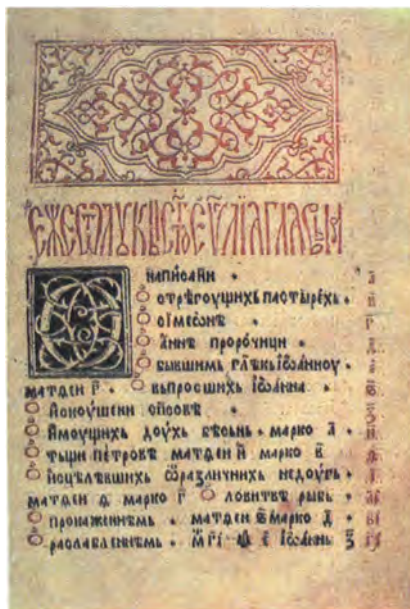 Е҆ЖЕ Ѿ ЛУКЫ СТ҃ОЕ ЕѴ҃ЛІА ГЛАВЫ
О написани · а҃
О стрѣгоущихь пастырехь · в҃
О сімеѡнѣ · г҃
О а́ннѣ пророчици ·
О бывшимь гл҃ѣ кь іѡанноу ·
матѳеи г҃ · О вьпросшихь іѡанна · ѕ҃
О искоушени сп҃совѣ · з҃
О имоущихь доухь бѣсьнь · марко а҃ · и҃
О тьщи петровѣ матѳеи и҃ марко в҃ ѳ҃
О исцѣлѣвших ѿ различних недоугь · і҃
матѳеи ѳ҃ марко г҃ О ловитвѣ рыбь · аі҃
О прокаженнѣмь · матѳеи ѕ҃ марко д҃ · ві҃
О раслабленнѣмь · м҃ гі҃ · е҃ іѡаннь з҃ гі҃